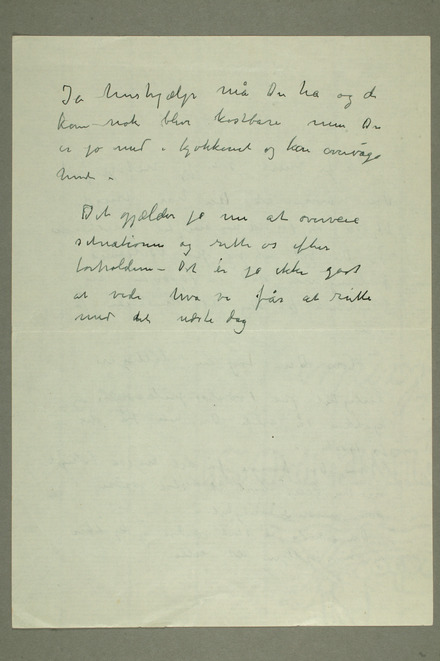 Ja hushjælp må Du ha og de
kan nok blive kostbare men Du
er jo med i kjøkkenet og kan overvåge
hende.
Det gjælder jo nu at overveie
situationen og rette os efter
forholdene – Det er jo ikke godt
at vide hva vi får at rutte
med det næste dag